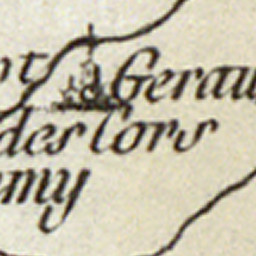 nt Gerau
des Cors
emy